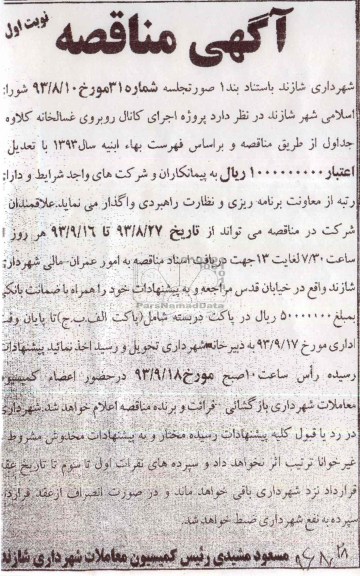 نوبت اول
آگهی مناقصه
شهرداری شازند باستناد بند۱ صورتجلسه شماره۳۱مورخ۹۳/۸/۱۰ شورای
اسلامی شهر شازند در نظر دارد پروژه اجرای کانال روبروی غسالخانه کلاوه
جداول از طریق مناقصه و براساس فهرست بهاء ابنیه سال۱۳۹۳ با تعدیل
اعتبار۱۰۰۰۰۰۰۰۰۰ ریال به پیمانکاران و شرکت های واجد شرایط و دارای
رتبه از معاونت برنامه ریزی و نظارت راهبردی واگذار می نماید.علاقمندان
شرکت در مناقصه می تواند از تاریخ ۹۳/۸/۲۷ تا ۹۳/۹/۱۶ هر روز
ساعت۷/۳۰ لغایت ۱۳ جهت دریافت اسناد مناقصه به امور عمران-مالی شهرداری
شازند واقع در خیابان قدس مراجعه و به پیشنهادات خود را همراه با ضمانت بانکی
بمبلغ۵۰۰۰۰۱۰۰ ریال در پاکت دربسته شامل(پاکت الف.ب.ج)تا پایان وقت
اداری مورخ ۹۳/۹/۱۷ به دبیرخانه شهرداری تحویل و رسید اخذ نمائید پیشنهادات
رسیده رأس ساعت۱۰صبح مورخ۹۳/۹/۱۸ درحضور اعضاء کمیسیون
معاملات شهرداری بازگشائی قرائت و برنده مناقصه اعلام خواهد شد.شهرداری
در رد یا قبول کلیه پیشنهادات رسیده مختار و به پیشنهادات مخدوش مشروط
غیرخوانا ترتیب اثر نخواهد داد و سپرده های نفرات اول تا سوم تا تاریخ عقد
قرارداد نزد شهرداری باقی خواهد ماند و در صورت انصراف ازعقد قرارداد
سپرده به نفع شهرداری ضبط خواهد شد.
مسعود مشیدی رئیس کمیسیون معاملات شهرداری شازند
ParsNamadData